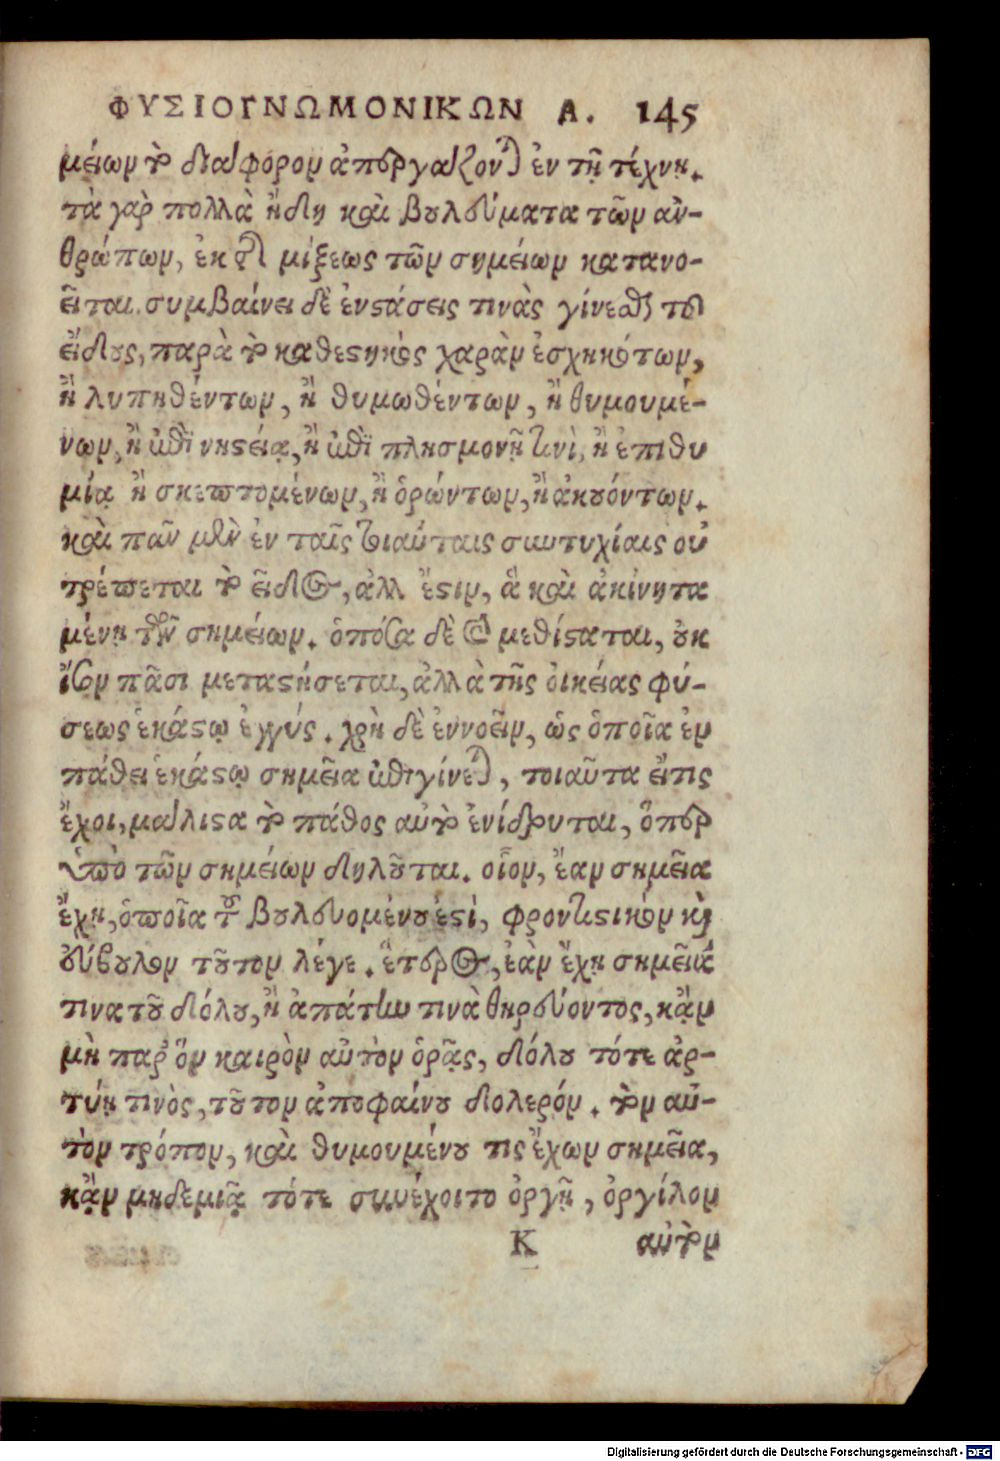 ΦΥΣΙΟΓΝΩΜΟΝΙΚΩΝ Α. 145
μείων τὸ διάφορον ἀπεργάζονται ἐν τῇ τέχνῃ.
τὰ γὰρ πολλὰ ἤδη καὶ βουλεύματα τῶν ἀν-
θρώπων, ἐκ τῆς μίξεως τῶν σημείων κατανο-
εῖται. συμβαίνει δὲ ἐνστάσεις τινὰς γίνεσθαι τοῦ
εἴδους, παρὰ τὸ καθεστηκὸς χαρὰν ἐσχηκότων,
ἢ λυπηθέντων, ἢ θυμωθέντων, ἢ θυμουμέ-
νων, ἢ ἐπὶ νηστείᾳ, ἢ ἐπὶ πλησμονῇ τινὶ, ἢ ἐπιθυ
μίᾳ ἢ σκεπτομένων, ἢ ὁρώντων, ἢ ἀκουόντων.
καὶ πᾶν μὲν ἐν ταῖς τοιαύταις συντυχίαις οὐ
τρέπεται τὸ εἶδος, ἀλλ' ἔστιν, ἃ καὶ ἀκίνητα
μένῃ τῶν σημείων. ὁπόσα δὲ καὶ μεθίσταται, οὐκ
ἴσον πᾶσι μεταστήσεται, ἀλλὰ τῆς οἰκείας φύ-
σεως ἑκάστῳ ἐγγύς. χρὴ δὲ ἐννοεῖν, ὡς ὁποῖα ἐν
πάθει ἑκάστῳ σημεῖα ἐπιγίνεται, τοιαῦτα εἴτις
ἔχοι, μάλιστα τὸ πάθος αὐτὸ ἐνίδρυται, ὅπερ
ὑπὸ τῶν σημείων δηλοῦται. οἷον, ἔαν σημεῖα
ἔχῃ, ὁποῖα τοῦ βουλευομένου ἐστὶ, φροντιστικὸν καὶ
εὔβουλον τοῦτον λέγε. ἕτερος, ἐὰν ἔχῃ σημεῖά
τινα τοῦ δόλου, ἢ ἀπάτην τινὰ θηρεύοντος, κᾂν
μὴ παρ' ὃν καιρὸν αὐτὸν ὁρᾷς, δόλου τότε ἀρ-
τύῃ τινὸς, τοῦτον ἀποφαίνου δολερόν. τὸν αὐ-
τὸν τρόπον, καὶ θυμουμένου τις ἔχων σημεῖα,
κᾂν μηδεμιᾷ τότε συνέχοιτο ὀργῇ, ὀργίλον
Κ αὐτὸν
Digitalisierung gefördert durch die Deutsche Forschungsgemeinschaft - DFG